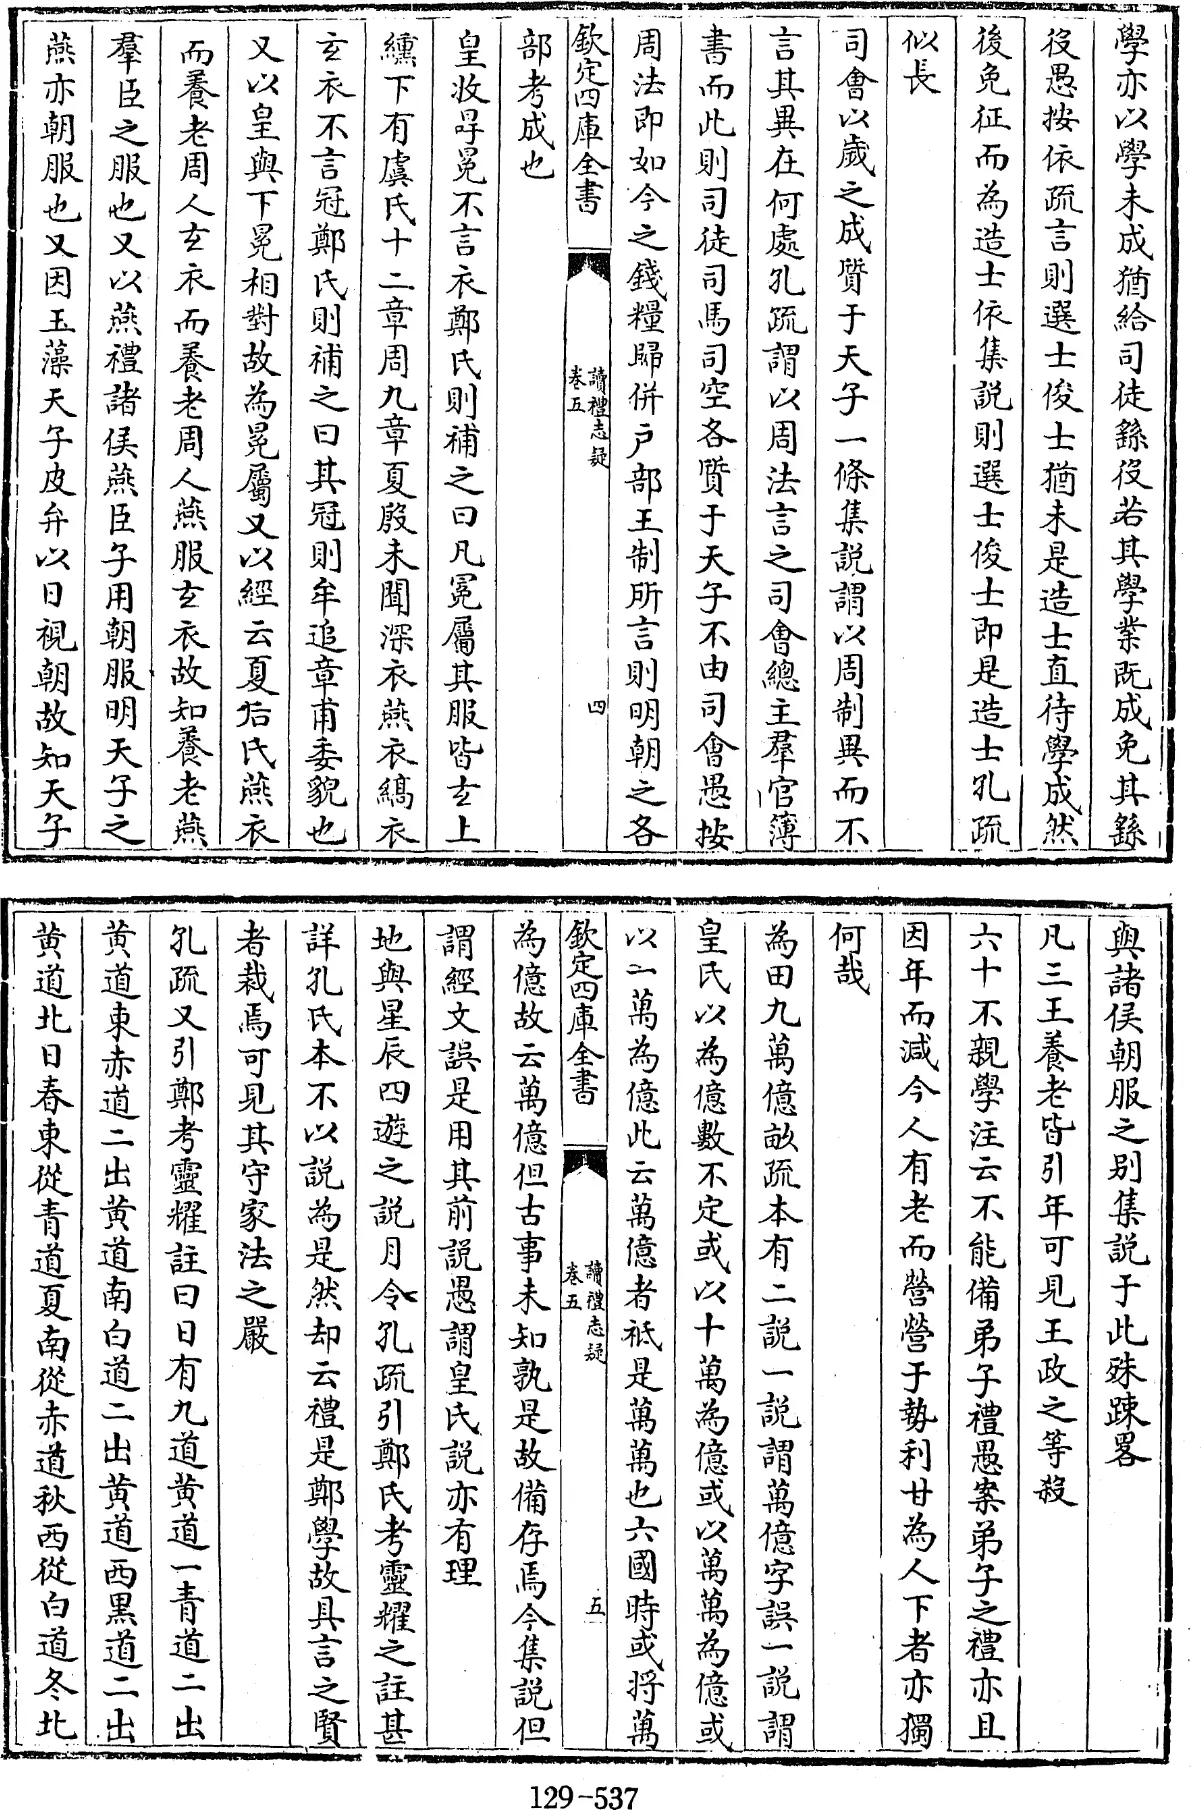 學亦以學未成猶給司徒繇役若其學業既成免其繇
役愚按依疏言則選士俊士猶未是造士直待學成然
後免征而為造士依集説則選士俊士即是造士孔疏
似長
司會以歲之成質于天子一條集説謂以周制異而不
言其異在何處孔疏謂以周法言之司會總主羣官簿
書而此則司徒司馬司空各質于天子不由司會愚按
周法即如今之錢糧歸併户部王制所言則明朝之各
欽定四庫全書
讀禮志疑
卷五
四
部考成也
皇收冔冕不言衣鄭氏則補之曰凡冕屬其服皆玄上
纁下有虞氏十二章周九章夏殷未聞深衣燕衣縞衣
玄衣不言冠鄭氏則補之曰其冠則牟追章甫委貌也
又以皇與下冕相對故為冕屬又以經云夏后氏燕衣
而養老周人玄衣而養老周人燕服玄衣故知養老燕
羣臣之服也又以燕禮諸侯燕臣子用朝服明天子之
燕亦朝服也又因玉藻天子皮弁以日視朝故知天子
與諸侯朝服之别集説于此殊踈畧
凡三王養老皆引年可見王政之等殺
六十不親學注云不能備弟子禮愚案弟子之禮亦且
因年而減今人有老而營營于勢利甘為人下者亦獨
何哉
為田九萬億畝疏本有二説一説謂萬億字誤一説謂
皇氏以為億數不定或以十萬為億或以萬萬為億或
以一萬為億此云萬億者祗是萬萬也六國時或將萬
欽定四庫全書
讀禮志疑
卷五
五
為億故云萬億但古事未知孰是故備存焉今集説但
謂經文誤是用其前説愚謂皇氏説亦有理
地與星辰四遊之説月令孔疏引鄭氏考靈耀之註甚
詳孔氏本不以説為是然却云禮是鄭學故具言之賢
者裁焉可見其守家法之嚴
孔疏又引鄭考靈耀註曰日有九道黄道一青道二出
黄道東赤道二出黄道南白道二出黄道西黒道二出
黄道北日春東從青道夏南從赤道秋西從白道冬北
129-537